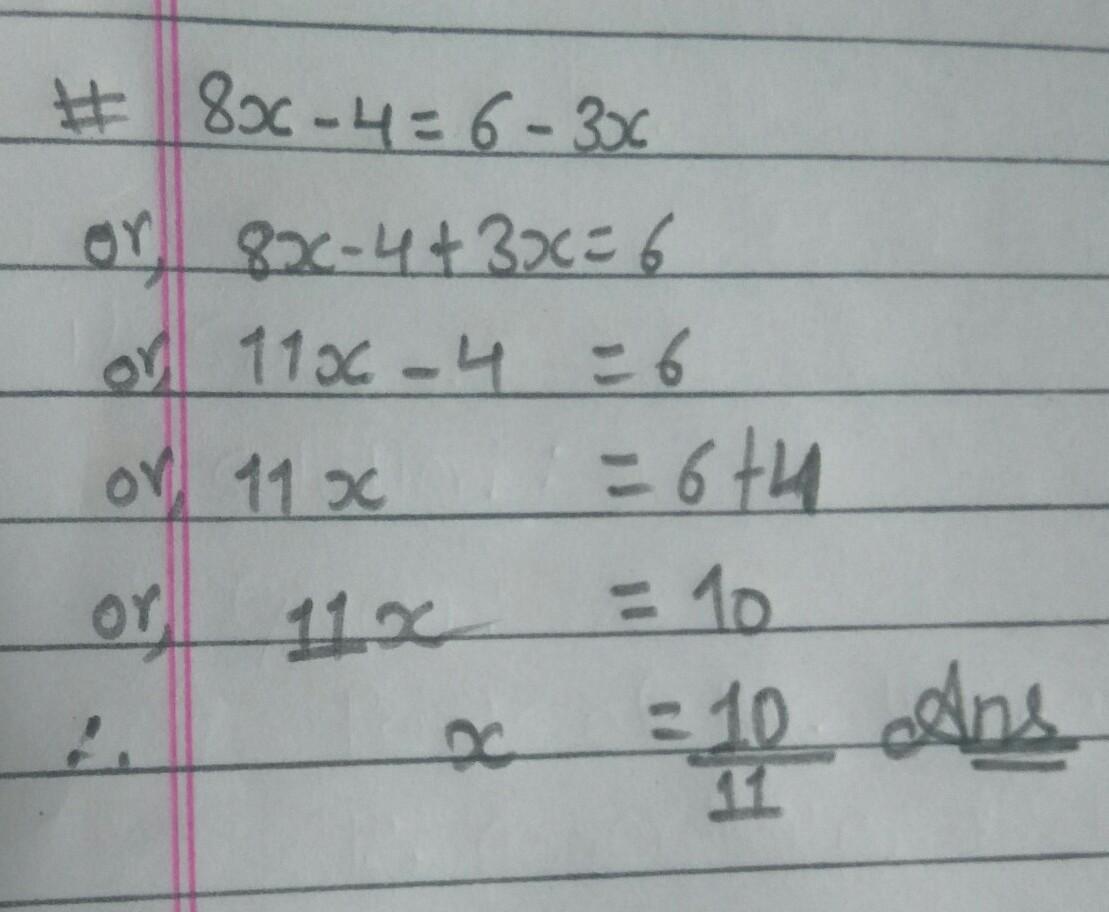 # 8x - 4 = 6 - 3x
or, 8x - 4 + 3x = 6
or, 11x - 4 = 6
or, 11x = 6 + 4
or, 11x = 10
∴ x = 10/11 Ans